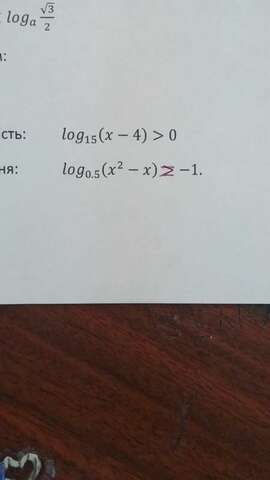 log_a √3/2
:
сть: log₁₅(x − 4) > 0
ня: log₀.₅(x² − x) ≥ −1.